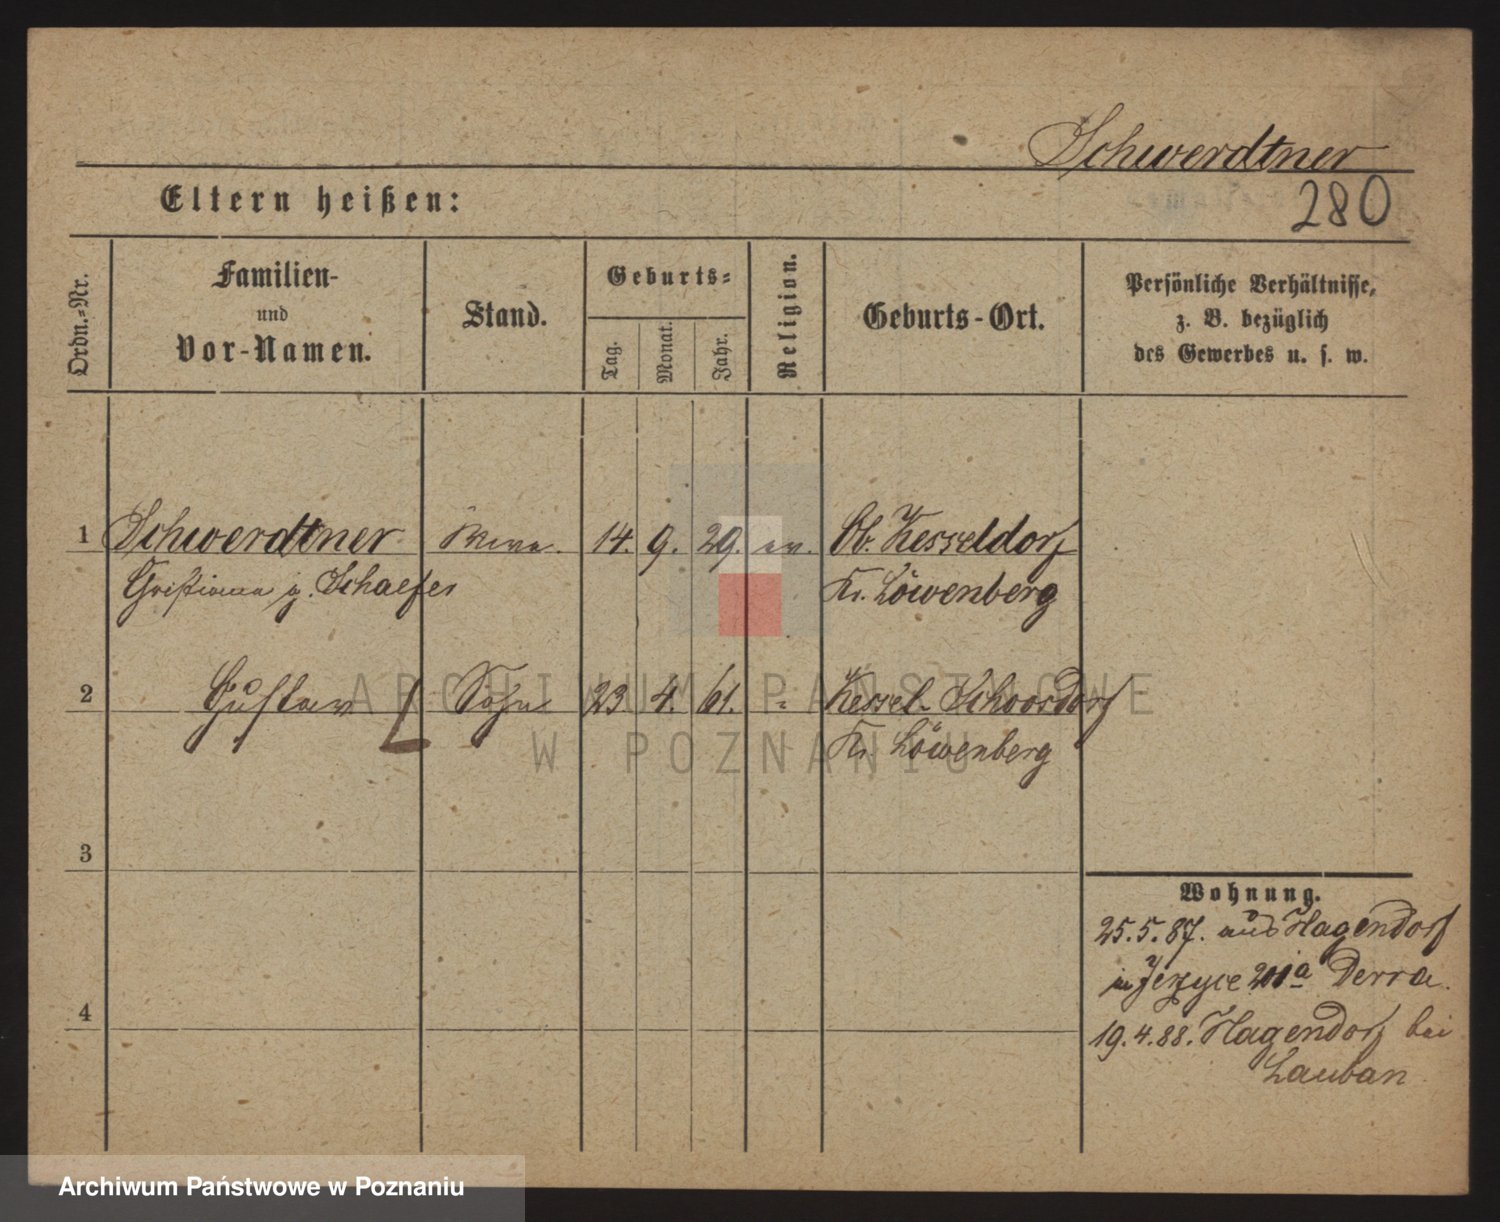 Schwerdtner
Eltern heißen:
280
Ordn.-Nr.
Familien-
und
Vor-Namen.
Stand.
Geburts-
Tag.
Monat.
Jahr.
Religion.
Geburts-Ort.
Persönliche Verhältnisse,
z. B. bezüglich
des Gewerbes u. s. w.
1 Schwerdtner Wwe. 14. 9. 29. ev. Ob. Kesseldorf
Christiana g. Schaefer Kr. Löwenberg
2 Gustav Sohn 23 4. 61. " Kessel-Schoosdorf
Kr. Löwenberg
3
Wohnung.
25.5.87. aus Hagendorf
in Jerzyce 201a Derra.
4
19.4.88. Hagendorf bei
Lauban
ARCHIWUM PAŃSTWOWE
W POZNANIU
Archiwum Państwowe w Poznaniu